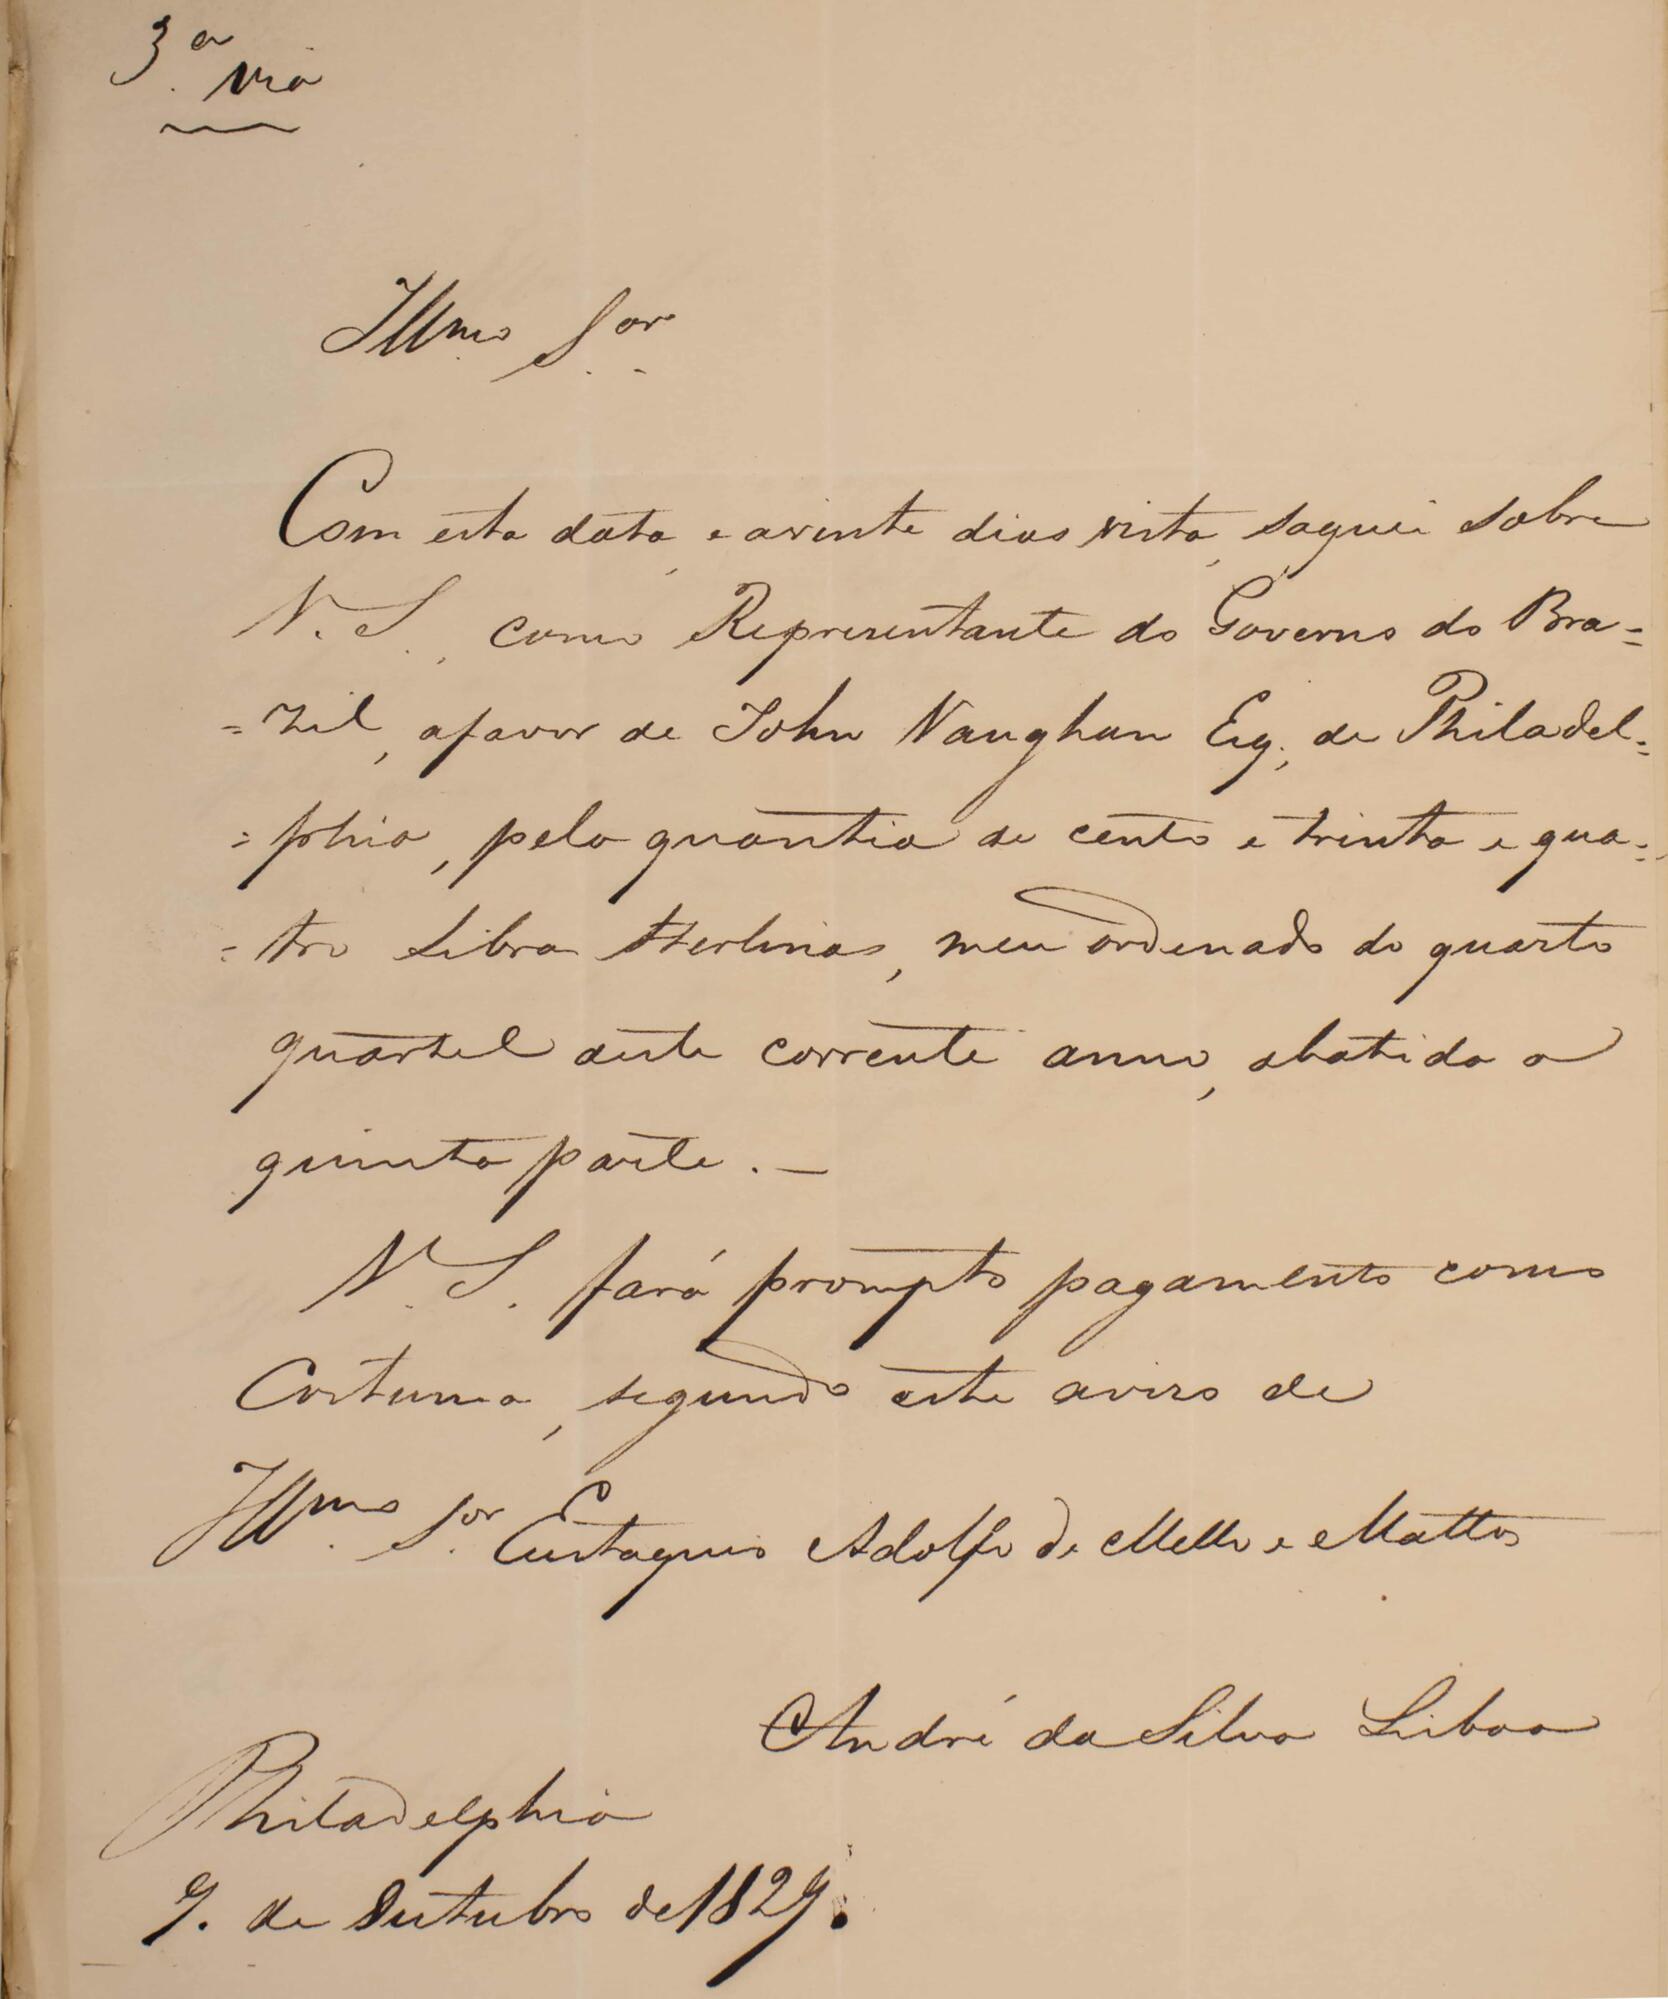 3.ª via
Illmo Sor.
Com esta data, e a vinte dias vista, saquei sobre
V. S., como Representante do Governo do Bra=
=zil, a favor de John Vaughan Esq., de Philadel=
=phia, pela quantia de cento e trinta e qua=
=tro Libras Sterlinas, meu ordenado do quarto
quartel deste corrente anno, abatida a
quinta parte. —
V. S. fará prompto pagamento como
Costuma, segundo este aviso de
Illmo Sor. Eustaquio Adolfo de Mello e Mattos
André da Silva Lisboa
Philadelphia
9. de Outubro de 1829.